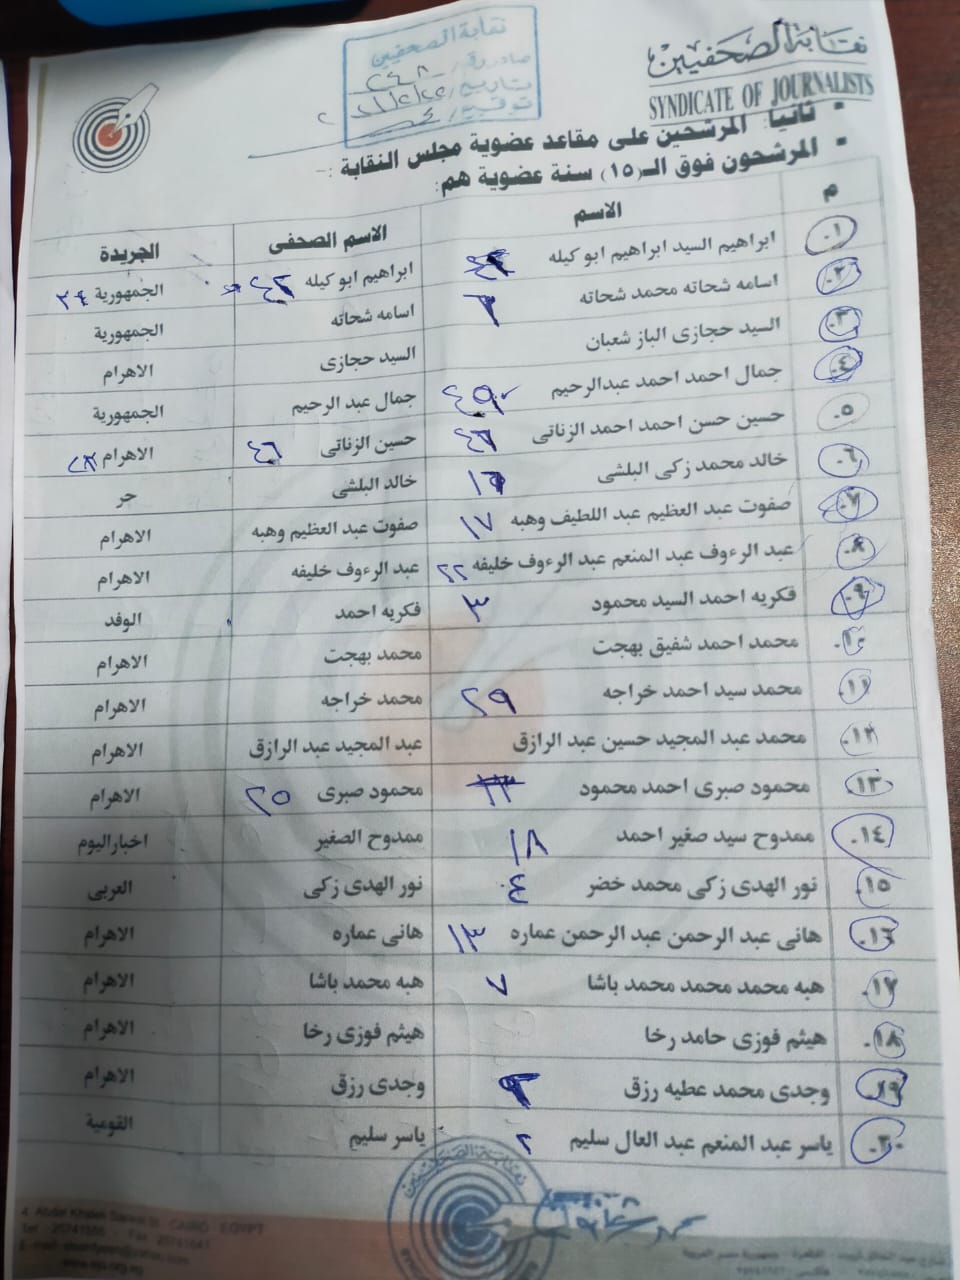 نقابة الصحفيين
SYNDICATE OF JOURNALISTS
نقابة الصحفيين
صادر رقم/ ٢٤٨
تاريخ/
توقيع/
ثانيا: المرشحين على مقاعد عضوية مجلس النقابة :-
المرشحون فوق الـ(١٥) سنة عضوية هم:
م الاسم الاسم الصحفى الجريدة
٠١ ابراهيم السيد ابراهيم ابو كيله ابراهيم ابو كيله الجمهورية
٠٢ اسامه شحاته محمد شحاته اسامه شحاته الجمهورية
٠٣ السيد حجازى الباز شعبان السيد حجازى الاهرام
٠٤ جمال احمد احمد عبدالرحيم جمال عبد الرحيم الجمهورية
٠٥ حسين حسن احمد احمد الزناتى ٤٦ حسين الزناتى ٤٦ الاهرام
٠٦ خالد محمد زكى البلشى خالد البلشى حر
٠٧ صفوت عبد العظيم عبد اللطيف وهبه ١٧ صفوت عبد العظيم وهبه الاهرام
٠٨ عبد الرءوف عبد المنعم عبد الرءوف خليفه ٢٢ عبد الرءوف خليفه الاهرام
٠٩ فكريه احمد السيد محمود ٣ فكريه احمد الوفد
٠١٠ محمد احمد شفيق بهجت محمد بهجت الاهرام
٠١١ محمد سيد احمد خراجه ٢٩ محمد خراجه الاهرام
٠١٢ محمد عبد المجيد حسين عبد الرازق عبد المجيد عبد الرازق الاهرام
٠١٣ محمود صبرى احمد محمود محمود صبرى ٢٥ الاهرام
٠١٤ ممدوح سيد صغير احمد ١٨ ممدوح الصغير اخباراليوم
٠١٥ نور الهدى زكى محمد خضر ٤ نور الهدى زكى العربى
٠١٦ هانى عبد الرحمن عبد الرحمن عماره ١٣ هانى عماره الاهرام
٠١٧ هبه محمد محمد محمد باشا ٧ هبه محمد باشا الاهرام
٠١٨ هيثم فوزى حامد رخا هيثم فوزى رخا الاهرام
٠١٩ وجدى محمد عطيه رزق وجدى رزق الاهرام
٠٢٠ ياسر عبد المنعم عبد العال سليم ٢ ياسر سليم القومية
نقابة الصحفيين
4 Abdel Khalek Sarwat St. CAIRO EGYPT